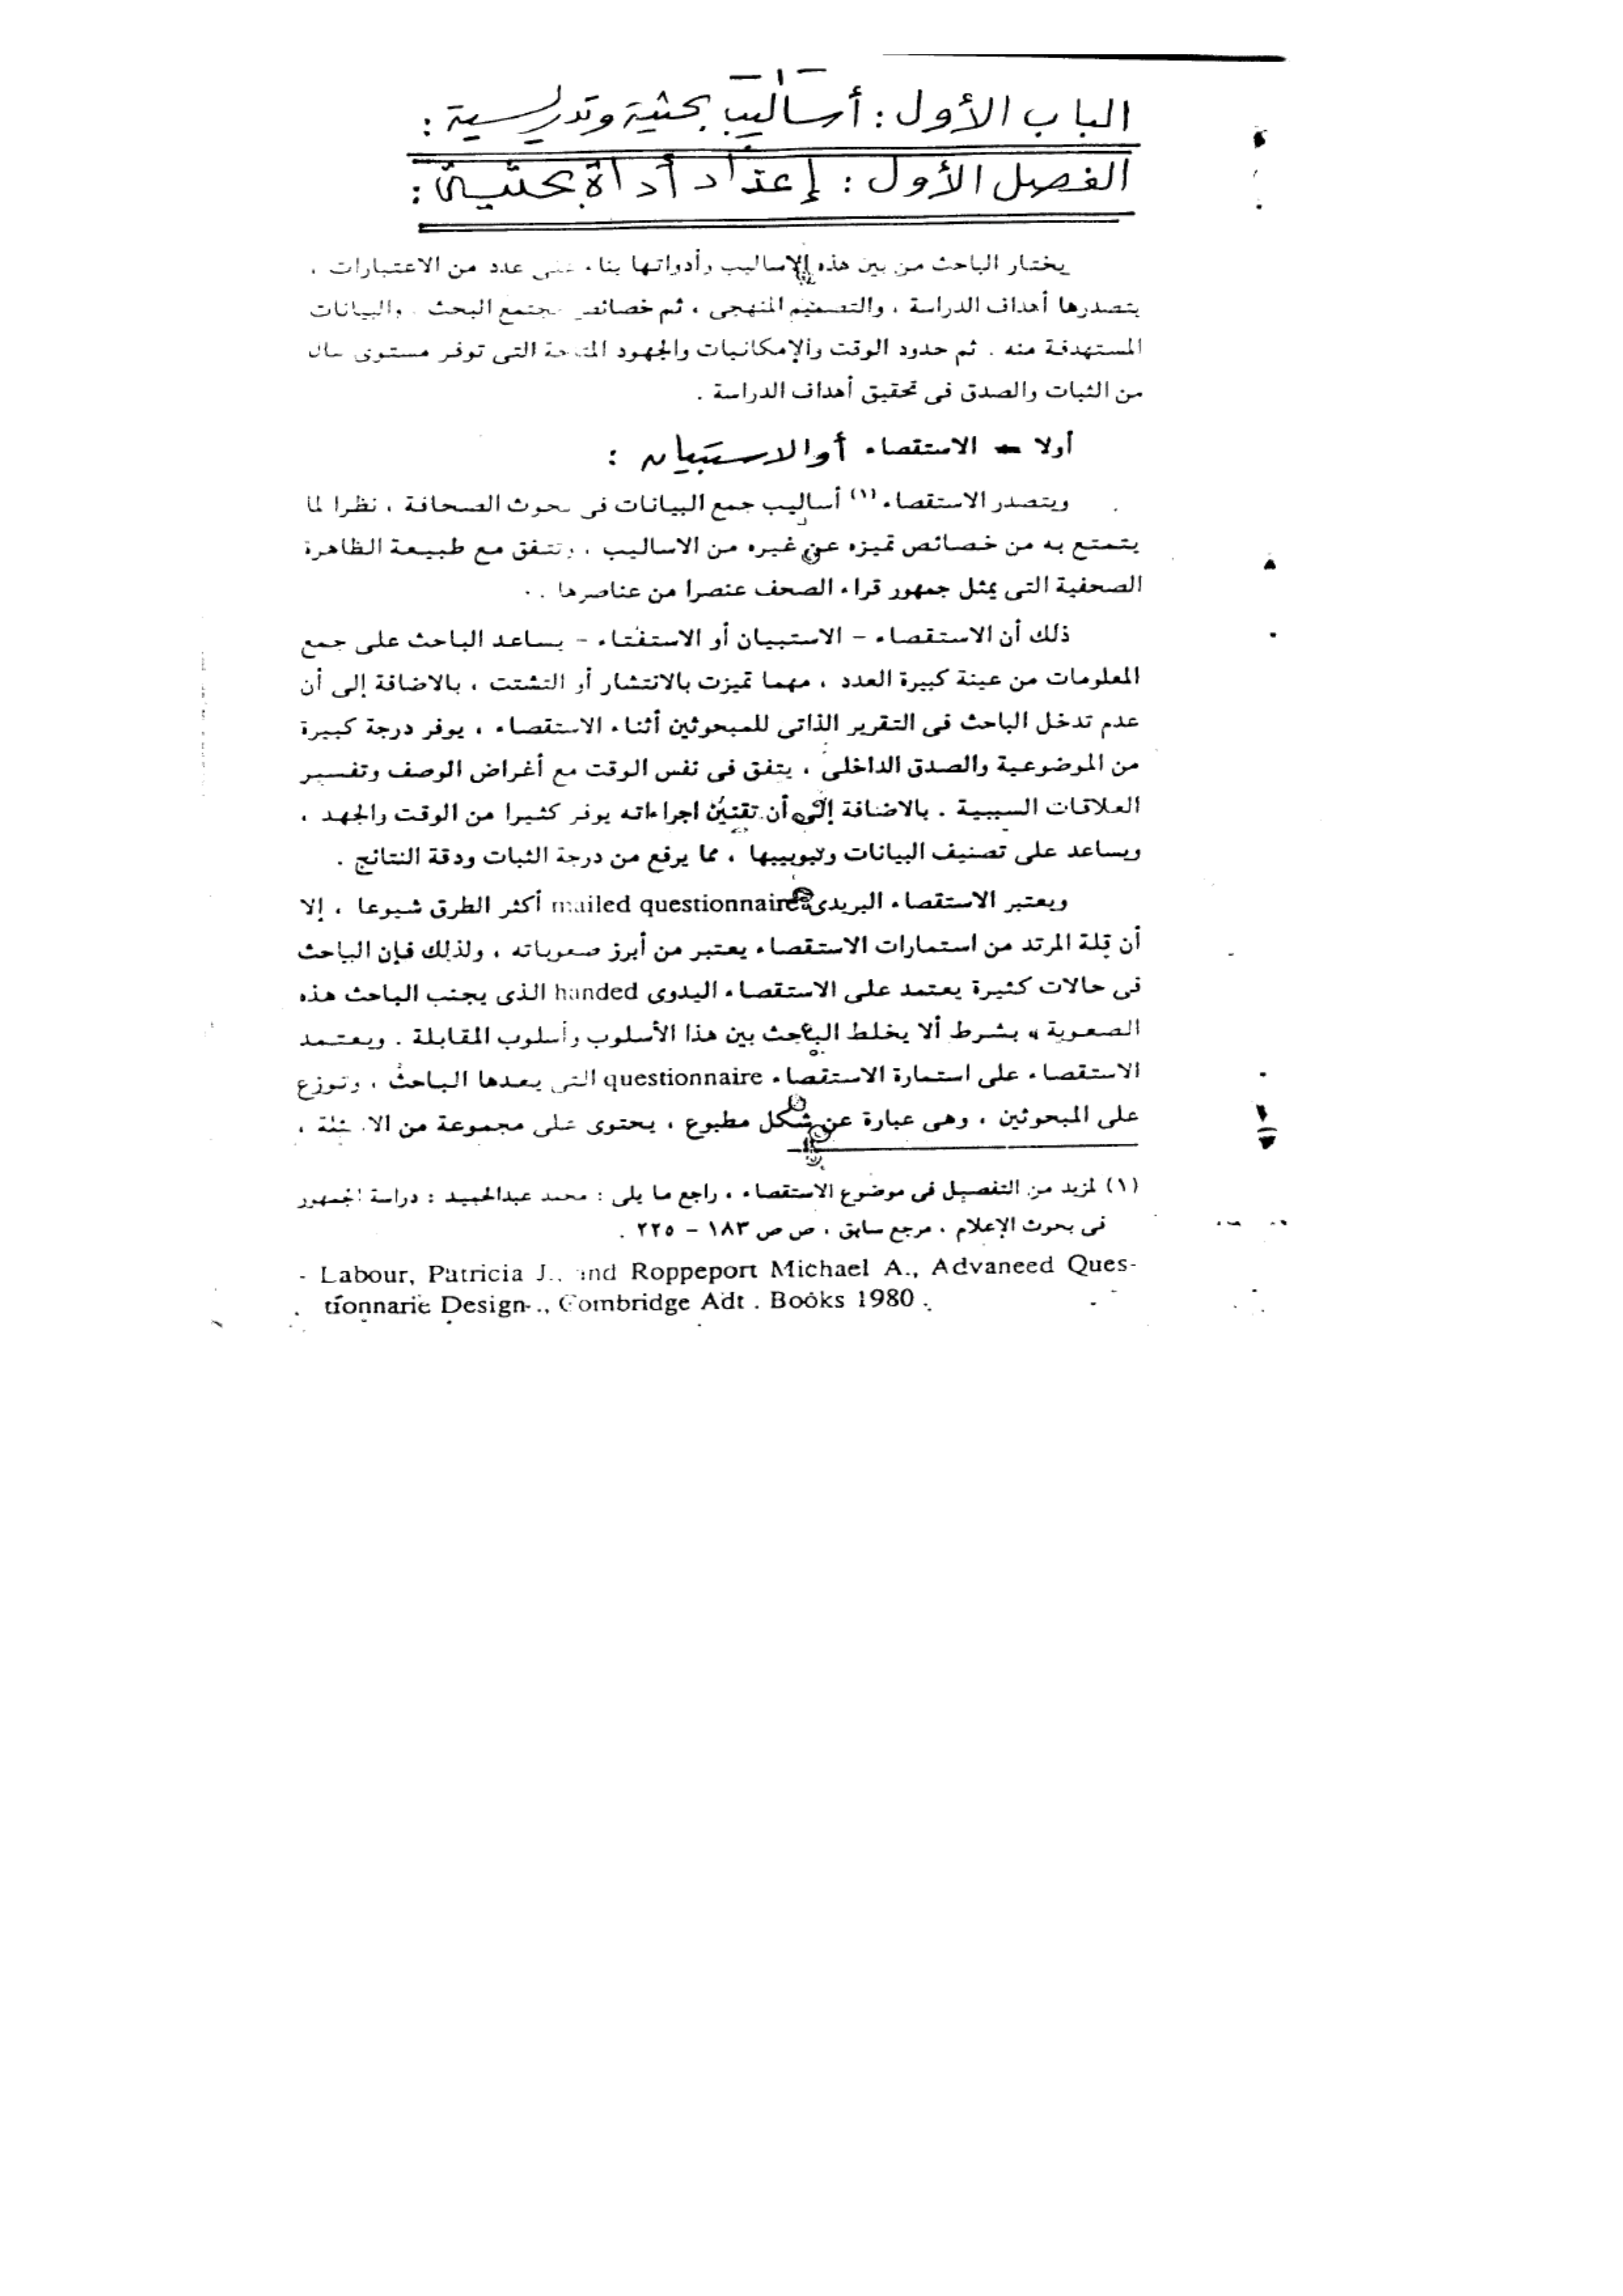 - ١ -
الباب الأول : أساليب بحثية وتدريسية :
الفصل الأول : إعداد أداة بحثية :
يختار الباحث من بين هذه الاساليب وأدواتها بناء على عدد من الاعتبارات ،
يتصدرها أهداف الدراسة ، والتصميم المنهجى ، ثم خصائص مجتمع البحث . والبيانات
المستهدفة منه . ثم حدود الوقت والإمكانيات والجهود المتاحة التى توفر مستوى عال
من الثبات والصدق فى تحقيق أهداف الدراسة .
أولا - الاستقصاء أو الاستبيان :
ويتصدر الاستقصاء (١) أساليب جمع البيانات فى بحوث الصحافة ، نظرا لما
يتمتع به من خصائص تميزه عن غيره من الاساليب ، وتتفق مع طبيعة الظاهرة
الصحفية التى يمثل جمهور قراء الصحف عنصرا من عناصرها . .
ذلك أن الاستقصاء - الاستبيان أو الاستفتاء - يساعد الباحث على جمع
المعلومات من عينة كبيرة العدد ، مهما تميزت بالانتشار أو التشتت ، بالاضافة إلى أن
عدم تدخل الباحث فى التقرير الذاتى للمبحوثين أثناء الاستقصاء ، يوفر درجة كبيرة
من الموضوعية والصدق الداخلى ، يتفق فى نفس الوقت مع أغراض الوصف وتفسير
العلاقات السببية . بالاضافة إلى أن تقنين اجراءاته يوفر كثيرا من الوقت والجهد ،
ويساعد على تصنيف البيانات وتبويبها ، مما يرفع من درجة الثبات ودقة النتائج .
ويعتبر الاستقصاء البريدى mailed questionnaire أكثر الطرق شيوعا ، إلا
أن قلة المرتد من استمارات الاستقصاء يعتبر من أبرز صعوباته ، ولذلك فإن الباحث
فى حالات كثيرة يعتمد على الاستقصاء اليدوى handed الذى يجنب الباحث هذه
الصعوبة ، بشرط ألا يخلط الباحث بين هذا الأسلوب وأسلوب المقابلة . ويعتمد
الاستقصاء على استمارة الاستقصاء questionnaire التى يعدها الباحث ، وتوزع
على المبحوثين ، وهى عبارة عن شكل مطبوع ، يحتوى على مجموعة من الاسئلة ،
(١) لمزيد من التفصيل فى موضوع الاستقصاء ، راجع ما يلى : محمد عبدالحميد : دراسة الجمهور
فى بحوث الإعلام ، مرجع سابق ، ص ص ١٨٣ - ٢٢٥ .
- Labour, Patricia J., and Roppeport Michael A., Advaneed Ques-
tionnarie Design-., Combridge Adt . Books 1980 .